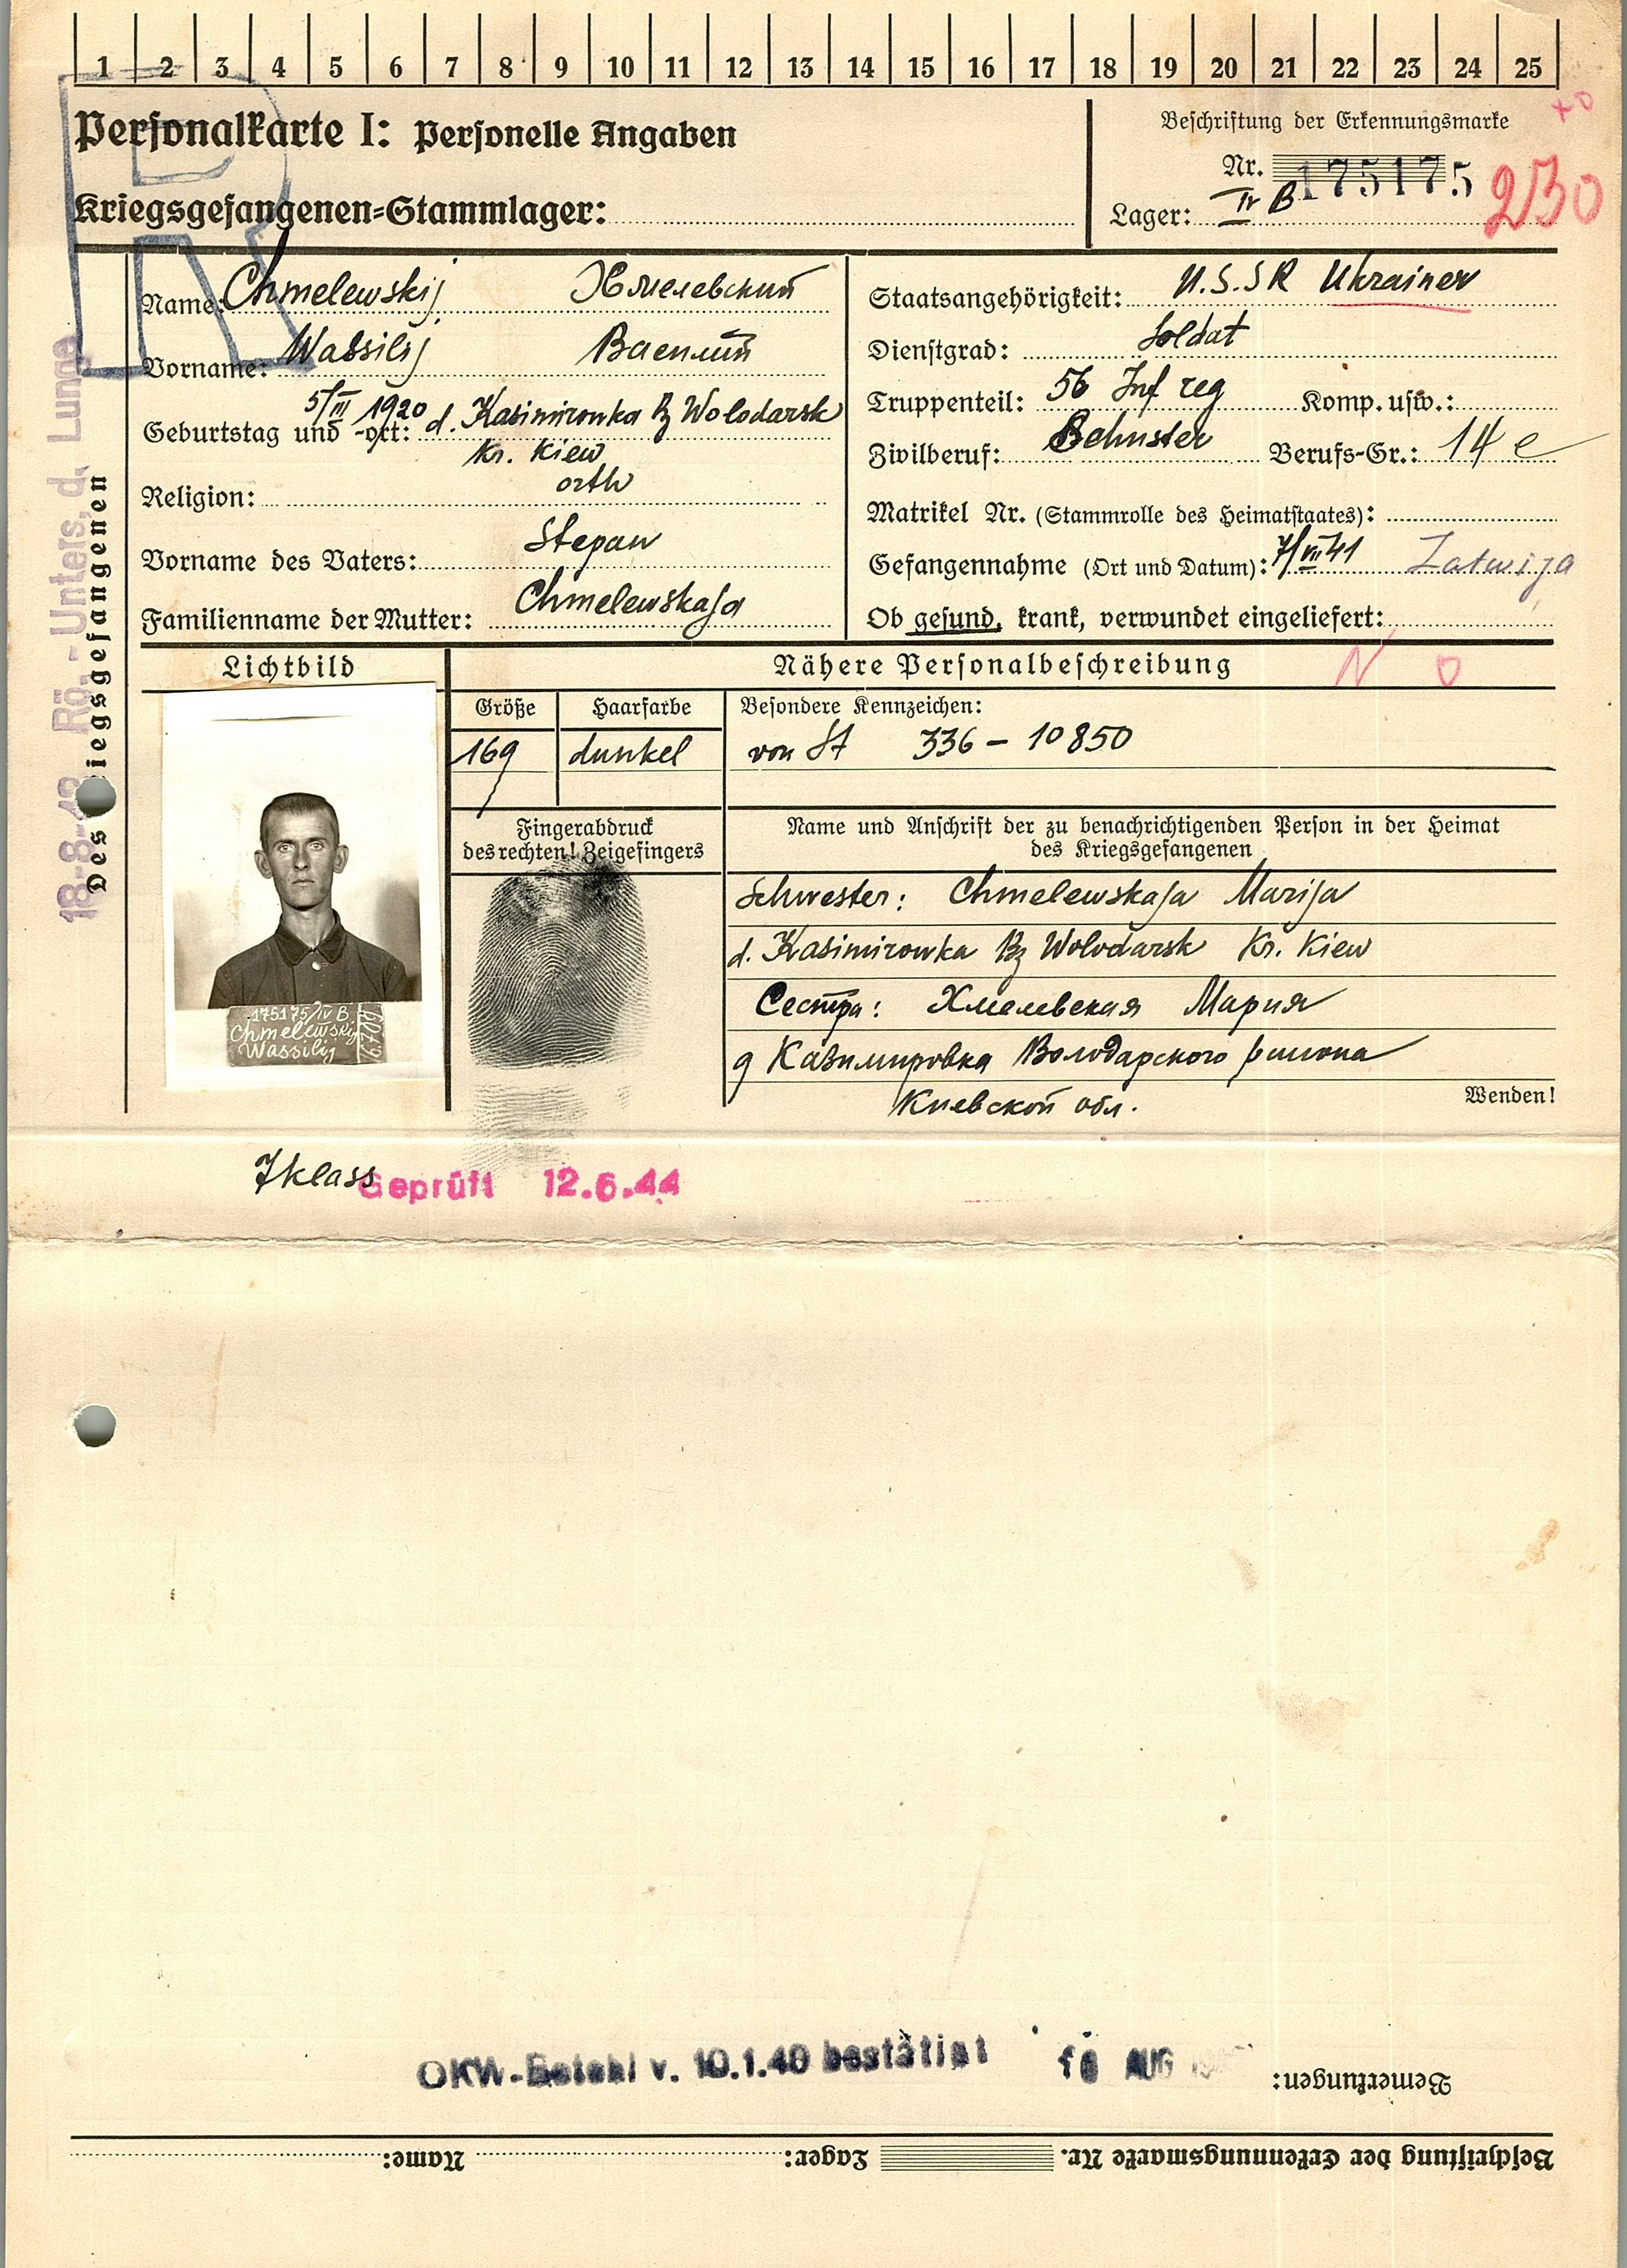 1 2 3 4 5 6 7 8 9 10 11 12 13 14 15 16 17 18 19 20 21 22 23 24 25
Personalkarte I: Personelle Angaben
Kriegsgefangenen=Stammlager:
Beschriftung der Erkennungsmarke
Nr. 175175
Lager: IV B
230
Name: Chmelewskij Хмелевский
Vorname: Wassilij Василий
Geburtstag und -ort: 5/III 1920 d. Kasimirowka Bz Wolodarsk
Kr. Kiew
Religion: orth
Vorname des Vaters: Stepan
Familienname der Mutter: Chmelewskaja
Staatsangehörigkeit: U.S.SR Ukrainer
Dienstgrad: Soldat
Truppenteil: 56 Inf reg Komp. usw.:
Zivilberuf: Berufs-Gr.: 14 e
Matrikel Nr. (Stammrolle des Heimatstaates):
Gefangennahme (Ort und Datum): 7/VII 41 Latwija
Ob gesund, krank, verwundet eingeliefert:
Des Kriegsgefangenen
18-8-42 Rö.-Unters. d. Lunge
Lichtbild
Nähere Personalbeschreibung
N O
Größe Haarfarbe Besondere Kennzeichen:
169 dunkel von St 336 - 10850
Fingerabdruck
des rechten! Zeigefingers
Name und Anschrift der zu benachrichtigenden Person in der Heimat
des Kriegsgefangenen
Schwester: Chmelewskaja Marija
d. Kasimirowka Bz Wolodarsk Kr. Kiew
Сестра: Хмелевская Мария
д Казимировка Володарского района
Киевской обл.
Wenden!
175175/IV B
Chmelewskij
Wassilij
7 klass
Geprüft 12.6.44
OKW-Befehl v. 10.1.40 bestätigt AUG
Bemerkungen:
Beschriftung der Erkennungsmarke Nr. Lager: Name: